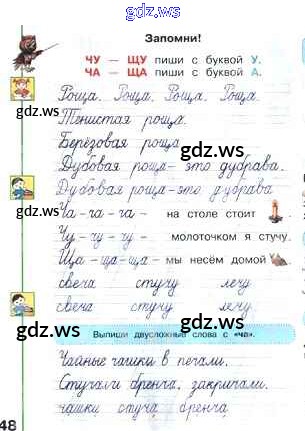 gdz.ws
Запомни!
ЧУ — ЩУ пиши с буквой У.
ЧА — ЩА пиши с буквой А.
Роща. Роща. Роща. Роща.
gdz.ws gdz.ws
Тенистая роща.
Берёзовая роща.
gdz.ws
Дубовая роща - это дубрава.
Дубовая роща - это дубрава
gdz.ws gdz.ws
Ча - ча - ча - на столе стоит
Чу - чу - чу - молоточком я стучу.
Ща - ща - ща - мы несём домой
свеча стучу лечу
gdz.ws gdz.ws
свеча стучу лечу
gdz.ws
Выпиши двусложные слова с «ча».
Чайные чашки в печали.
Стучали бренча, закричали.
48 чашки стуча бренча
gdz.ws gdz.ws